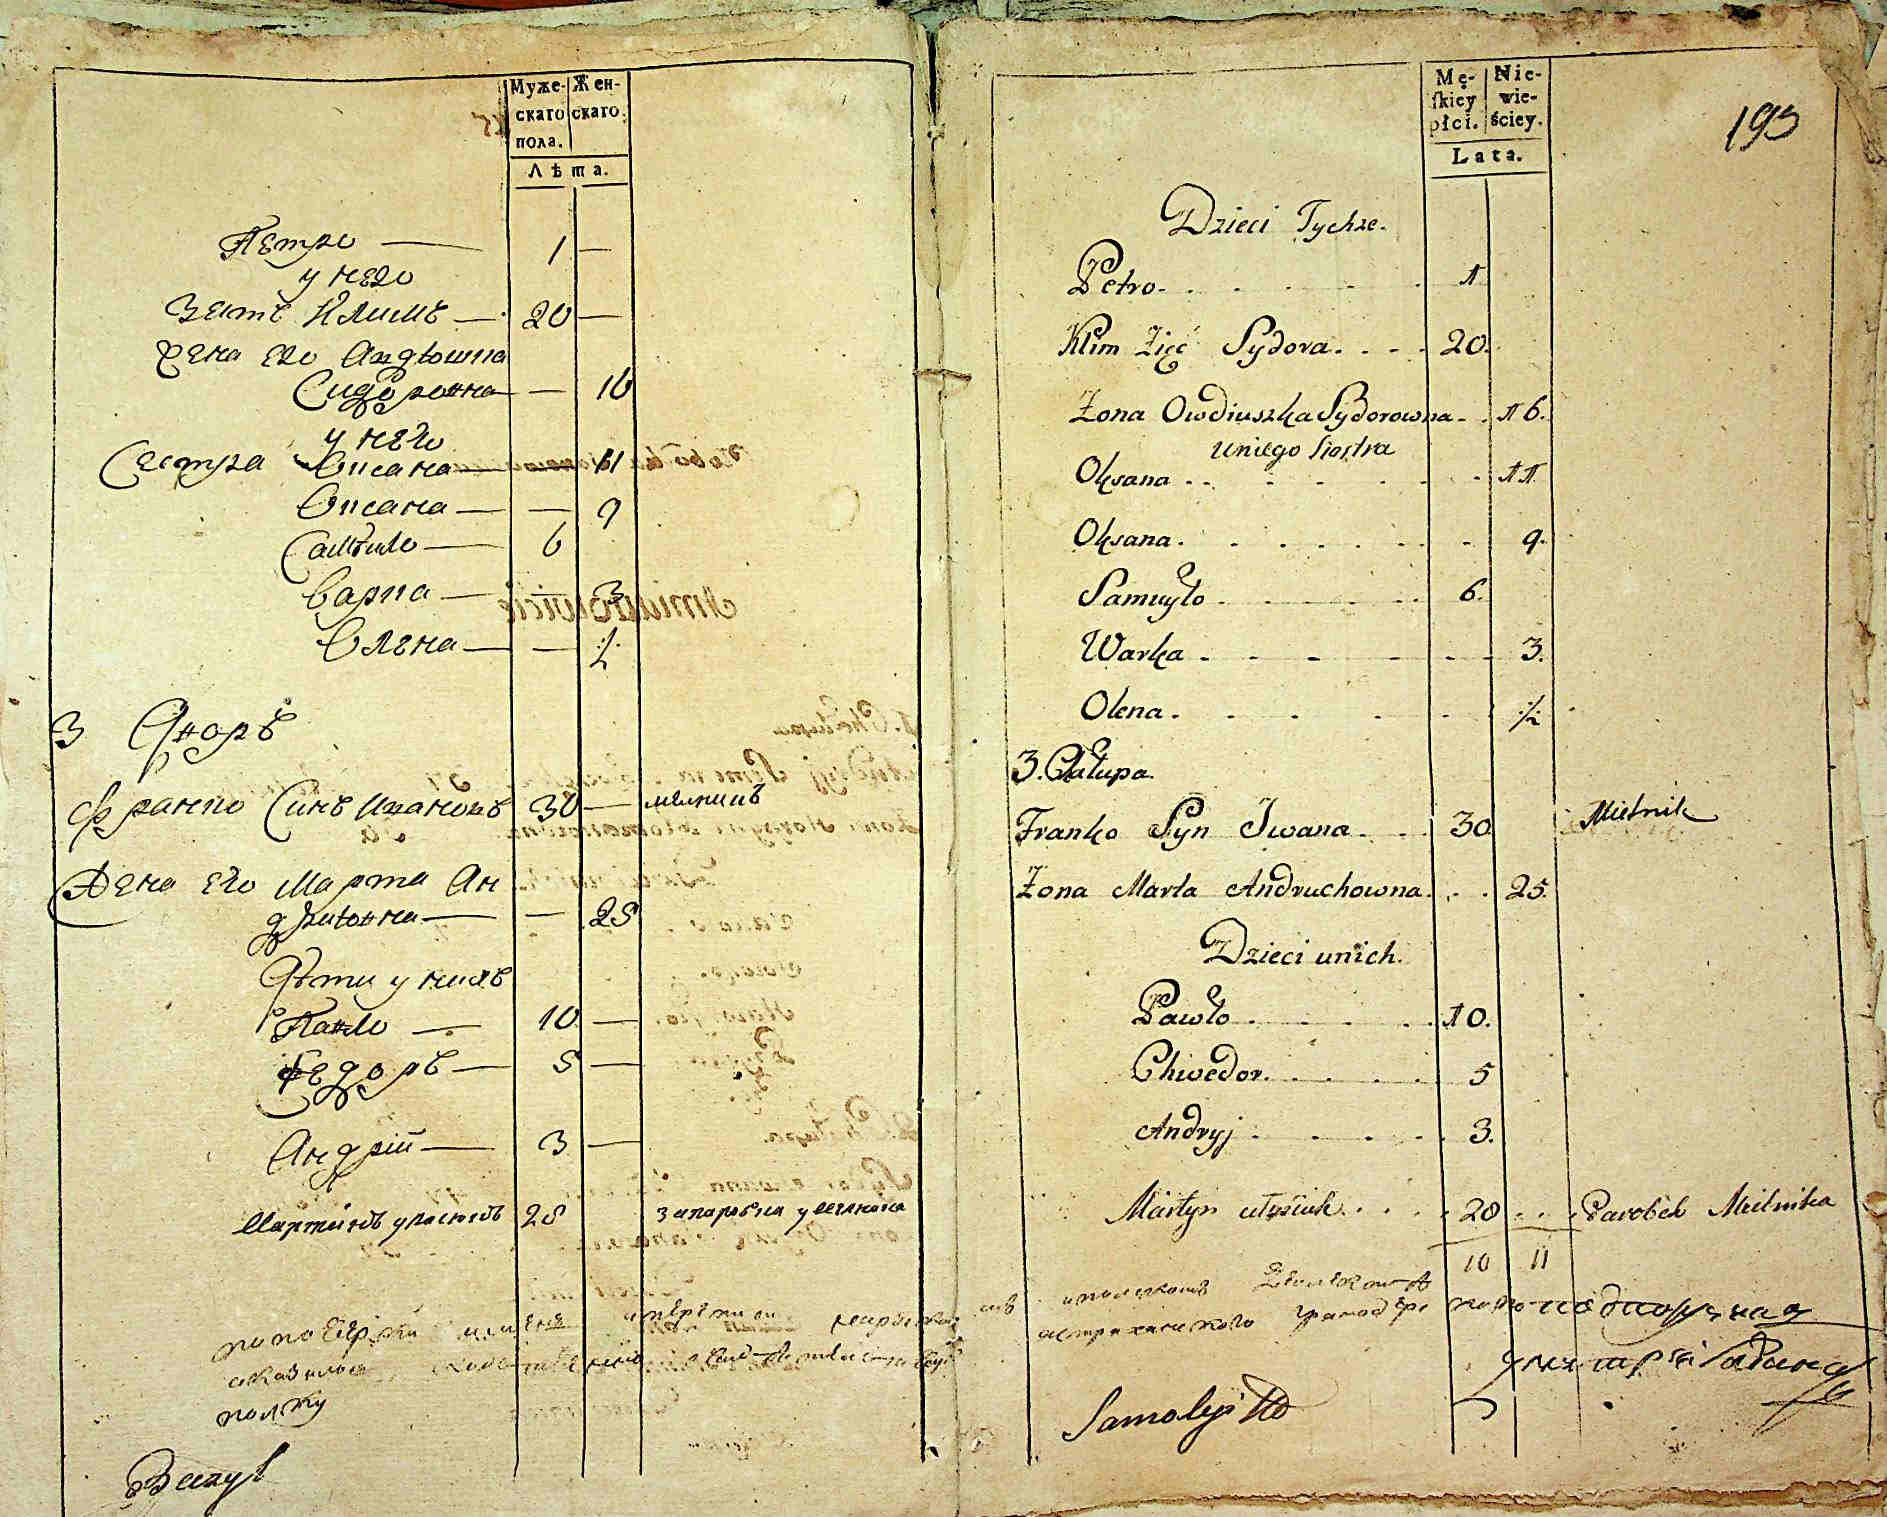 Муже-
скаго
пола.
Жен-
скаго.
Лѣта.
Петро — 1 —
у него
Зять Климъ — 20 —
Жена его Авдюшка
Сидоровна — — 16
у него
Сестра Оксана — 11
Оксана — — 9
Самуйло — 6
Варка — — 3
Олена — — ½
3 Дворъ
Франко Синъ Ивановъ 30 — мелникъ
Жена его Марта Ан
друховна — — 25
Дѣти у нихъ
Павло — 10 —
Федоръ — 5 —
Андрій — 3 —
Мартинъ 28 у мелника
полку
Mę-
skiey
płci.
Nie-
wie-
ściey.
Lata.
193
Dzieci Tychże.
Petro. 1
Klim Zięć Sydora. 20.
Żona Owdiuszka Sydorowna 16.
uniego Siostra
Oksana 11.
Oksana. 9.
Samuyło 6.
Warka 3.
Olena. ½
3. Chałupa.
Franko Syn Iwana. 30 Mielnik
Żona Marta Andruchowna. 25.
Dzieci unich.
Pawło 10.
Chwedor. 5
Andryj 3.
Martyn 28 Parobek Mielnika
10 11